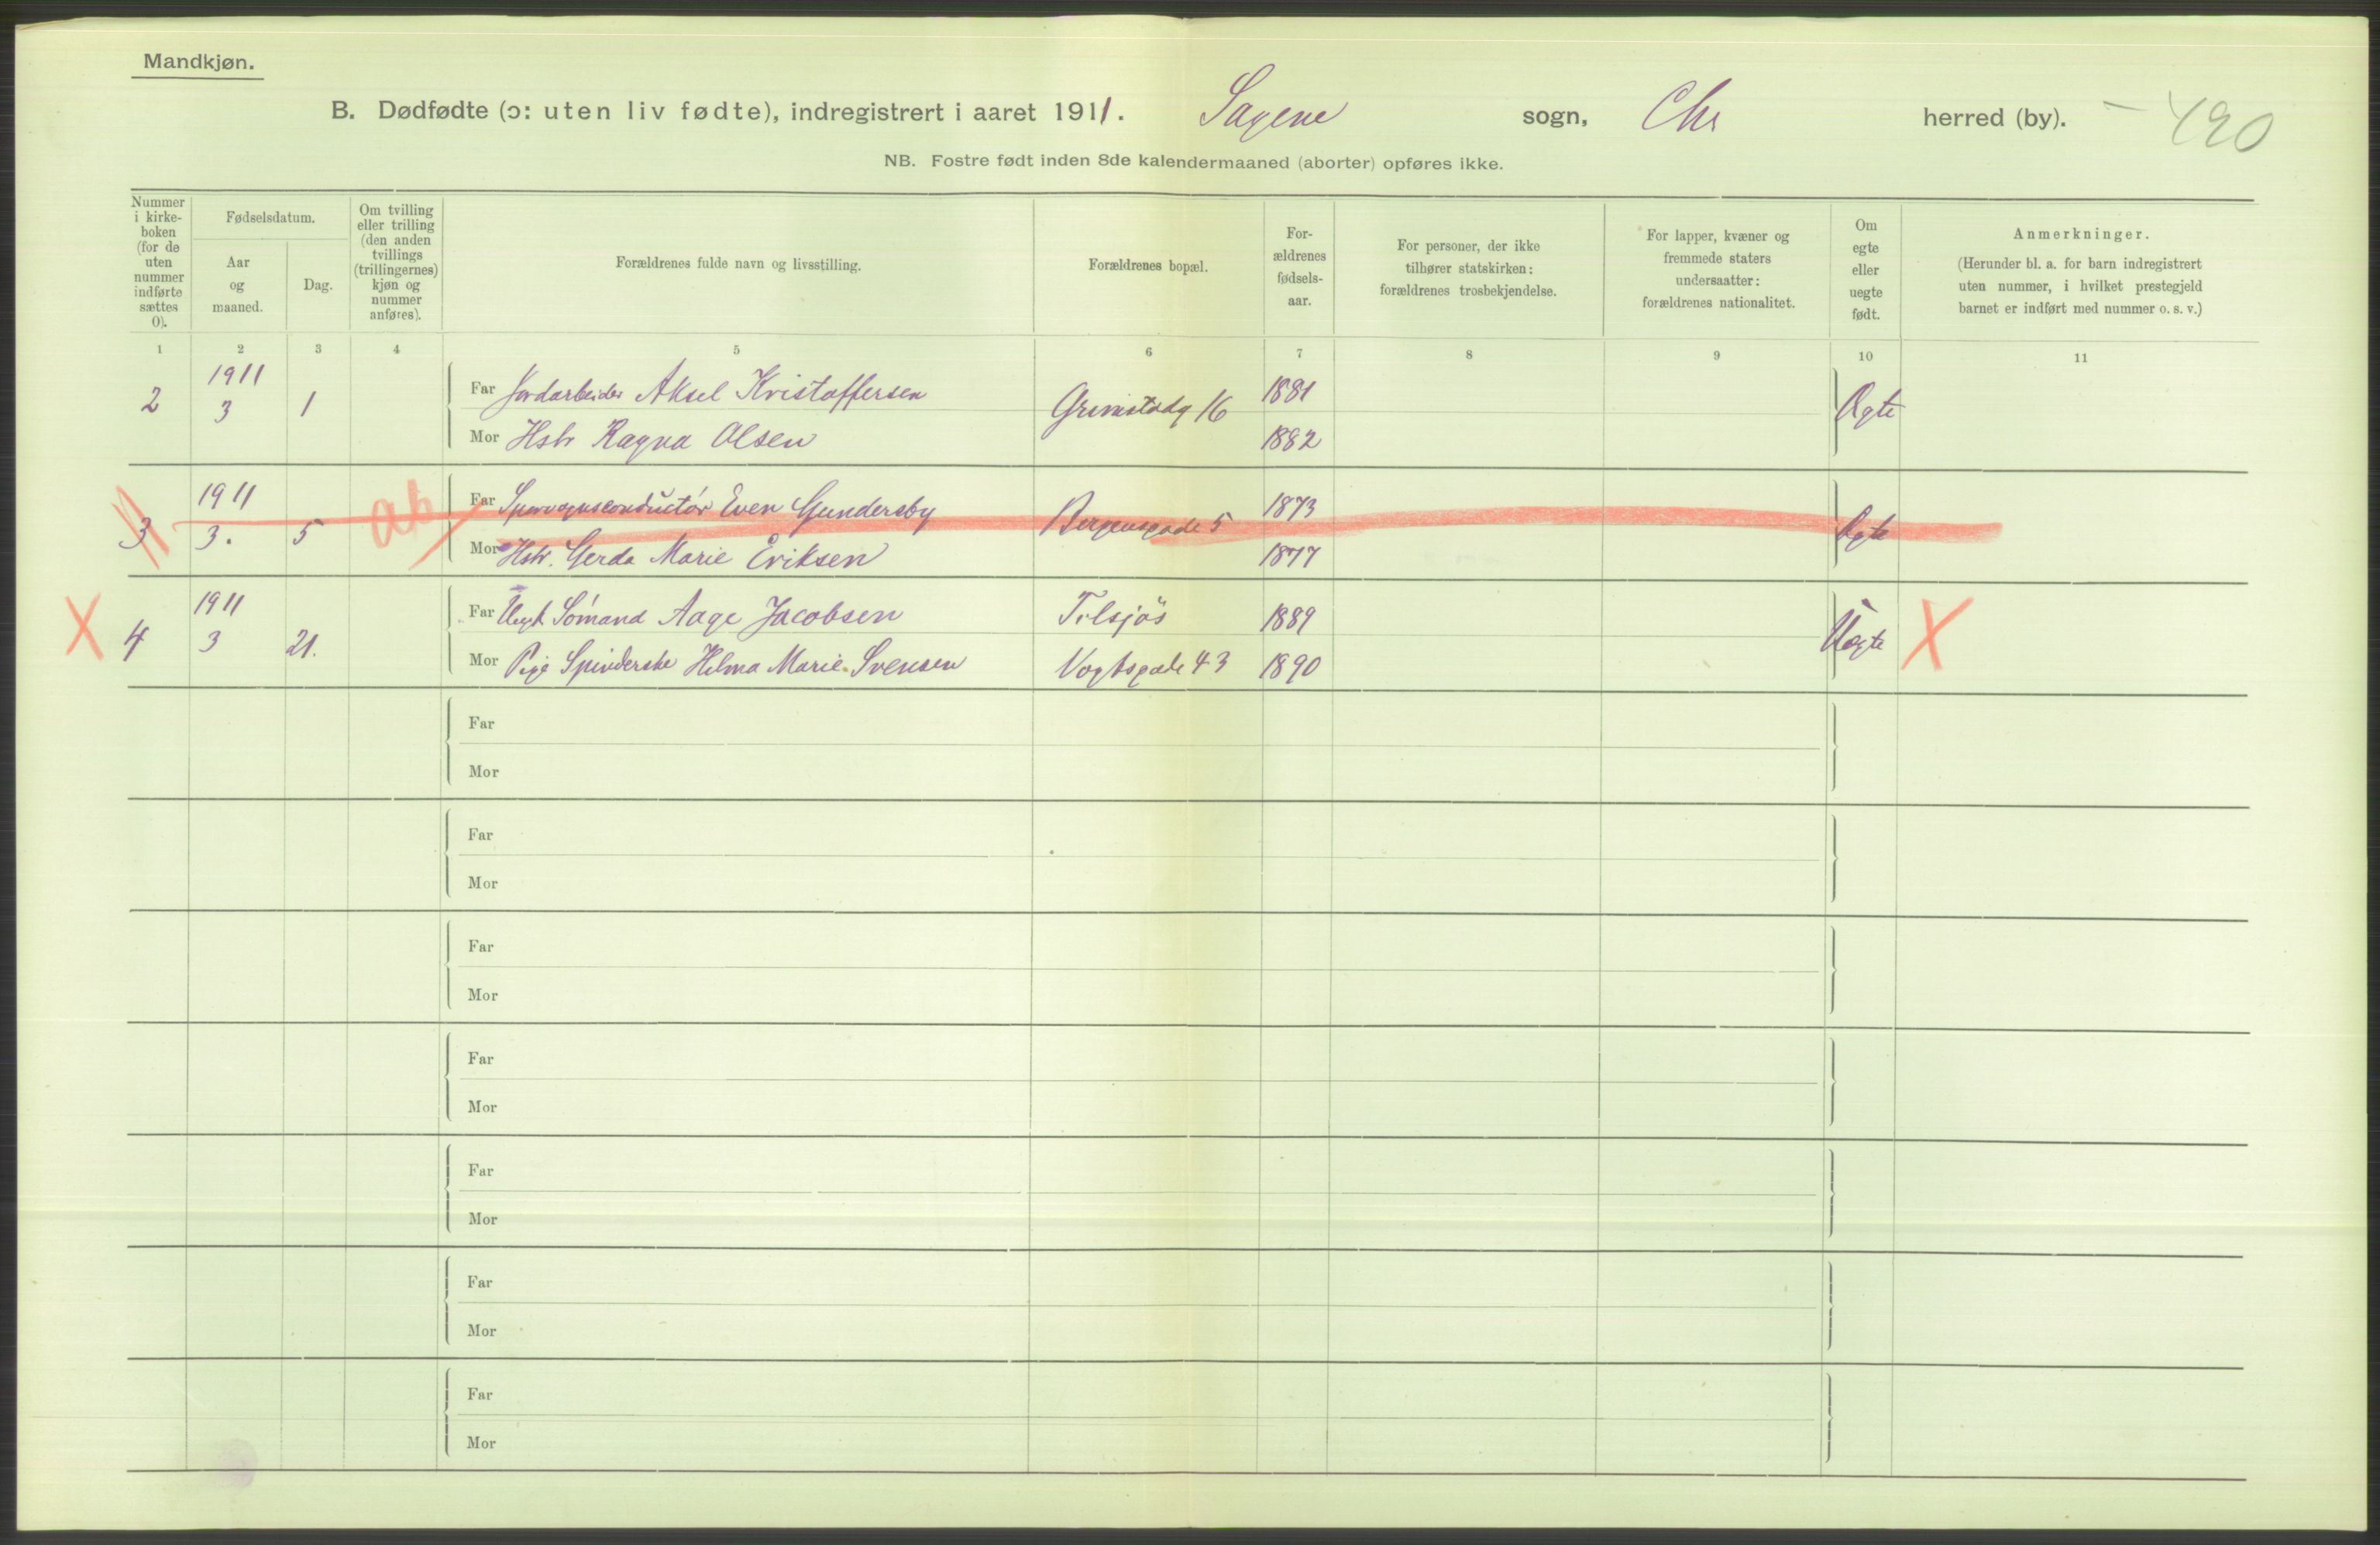 Mandkjøn.
B. Dødfødte (ɔ: uten liv fødte), indregistrert i aaret 1911. Sagene sogn, Chr herred (by). – 490
NB. Fostre født inden 8de kalendermaaned (aborter) opføres ikke.
Nummer i kirke-boken (for de uten nummer indførte sættes 0).
Fødselsdatum.
Aar og maaned.
Dag.
Om tvilling eller trilling (den anden tvillings (trillingernes) kjøn og nummer anføres).
Forældrenes fulde navn og livsstilling.
Forældrenes bopæl.
For-ældrenes fødsels-aar.
For personer, der ikke tilhører statskirken: forældrenes trosbekjendelse.
For lapper, kvæner og fremmede staters undersaatter: forældrenes nationalitet.
Om egte eller uegte født.
Anmerkninger.
(Herunder bl. a. for barn indregistrert uten nummer, i hvilket prestegjeld barnet er indført med nummer o. s. v.)
1 2 3 4 5 6 7 8 9 10 11
2 1911 3 1 Far Jordarbeider Aksel Kristoffersen Grimstadg 16 1881 Ægte
Mor Hstr Ragna Olsen 1882
3 1911 3. 5 ab Far Sporvognsconductør Even Gundersby Bergensgade 5 1873 Ægte
Mor Hstr. Gerda Marie Eriksen 1877
X 4 1911 3 21. Far Ungk Sömand Aage Jacobsen Tilsjös 1889 Uægte X
Mor Pige Spinderske Helma Marie Svensen Vogtsgade 43 1890
Far
Mor
Far
Mor
Far
Mor
Far
Mor
Far
Mor
Far
Mor
Far
Mor